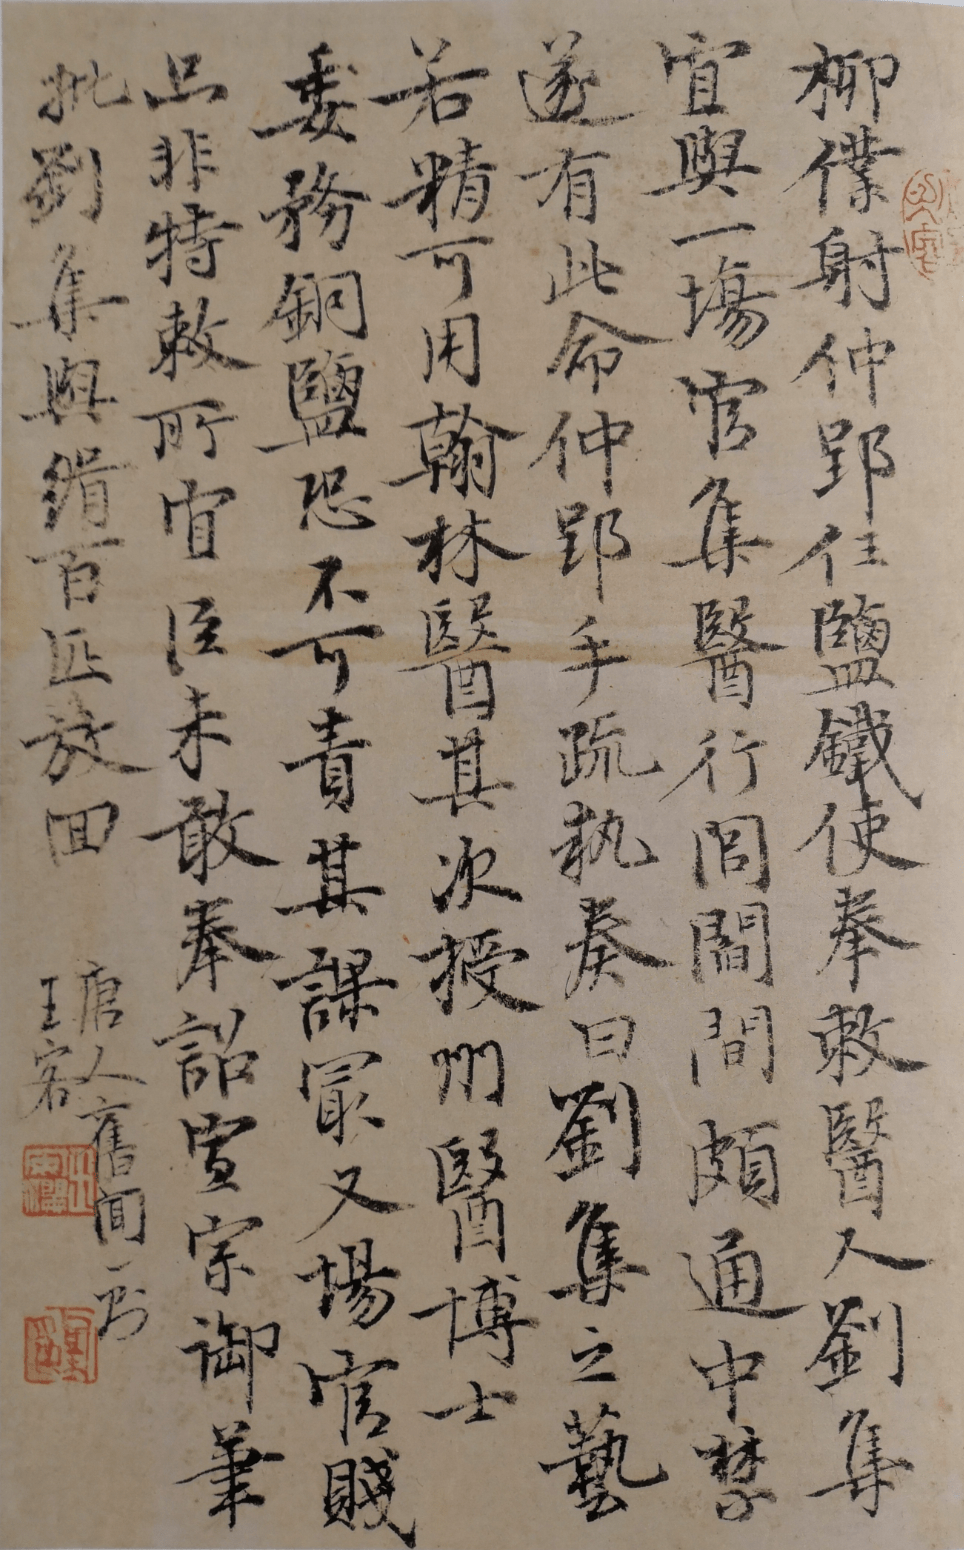 柳僕射仲郢任鹽鐵使奉敕醫人劉集
宜與一場官集醫行閭閻間頗通中禁
遂有此命仲郢手疏執奏曰劉集之藝
若精可用翰林醫其次授州醫博士
委務銅鹽恐不可責其課最又場官賤
品非特敕所宜臣未敢奉詔宣宗御筆
批劉集與絹百匹放回
唐人舊聞一則
王客